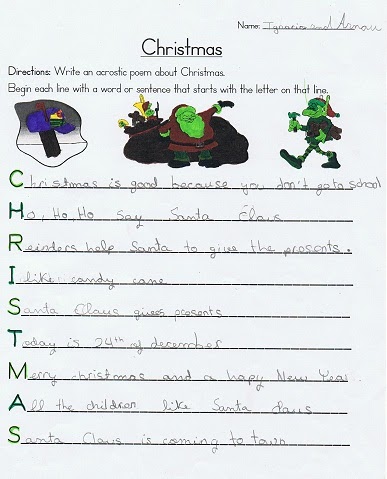 Name: Ignacio and Arnau
Christmas
Directions: Write an acrostic poem about Christmas.
Begin each line with a word or sentence that starts with the letter on that line.
Christmas is good because you don't go to school
Ho, Ho, Ho say Santa Claus
Reinders help Santa to give the presents.
I like candy cane
Santa Claus gives presents
Today is 24th of december
Merry christmas and a hapy New Year
All the children like Santa claus
Santa Claus is coming to town